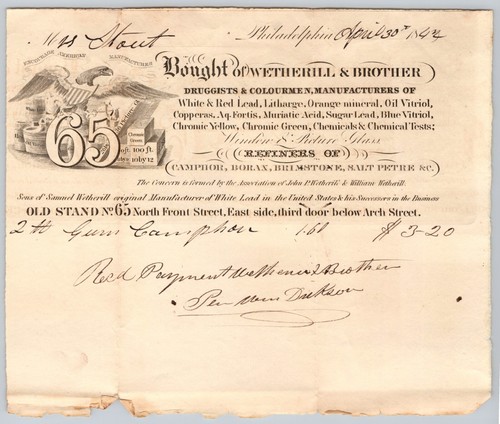 Mrs Stout
Philadelphia April 30th 1842
ENCOURAGE AMERICAN MANUFACTURES
65
Bought of WETHERILL & BROTHER
DRUGGISTS & COLOURMEN, MANUFACTURERS OF
White & Red Lead, Litharge, Orange mineral, Oil Vitriol,
Copperas, Aq. Fortis, Muriatic Acid, Sugar Lead, Blue Vitriol,
Chromic Yellow, Chromic Green, Chemicals & Chemical Tests;
Window & Picture Glass
REFINERS OF
CAMPHOR, BORAX, BRIMSTONE, SALT PETRE &C.
The Concern is formed by the Association of John P. Wetherill & William Wetherill.
Sons of Samuel Wetherill original Manufacturer of White Lead in the United States & his Successors in the Business
OLD STAND No. 65 North Front Street, East side, third door below Arch Street.
2 lb Gum Camphor 1.60 $3-20
Recd Payment Wetherill & Brother
Per Wm Dickson